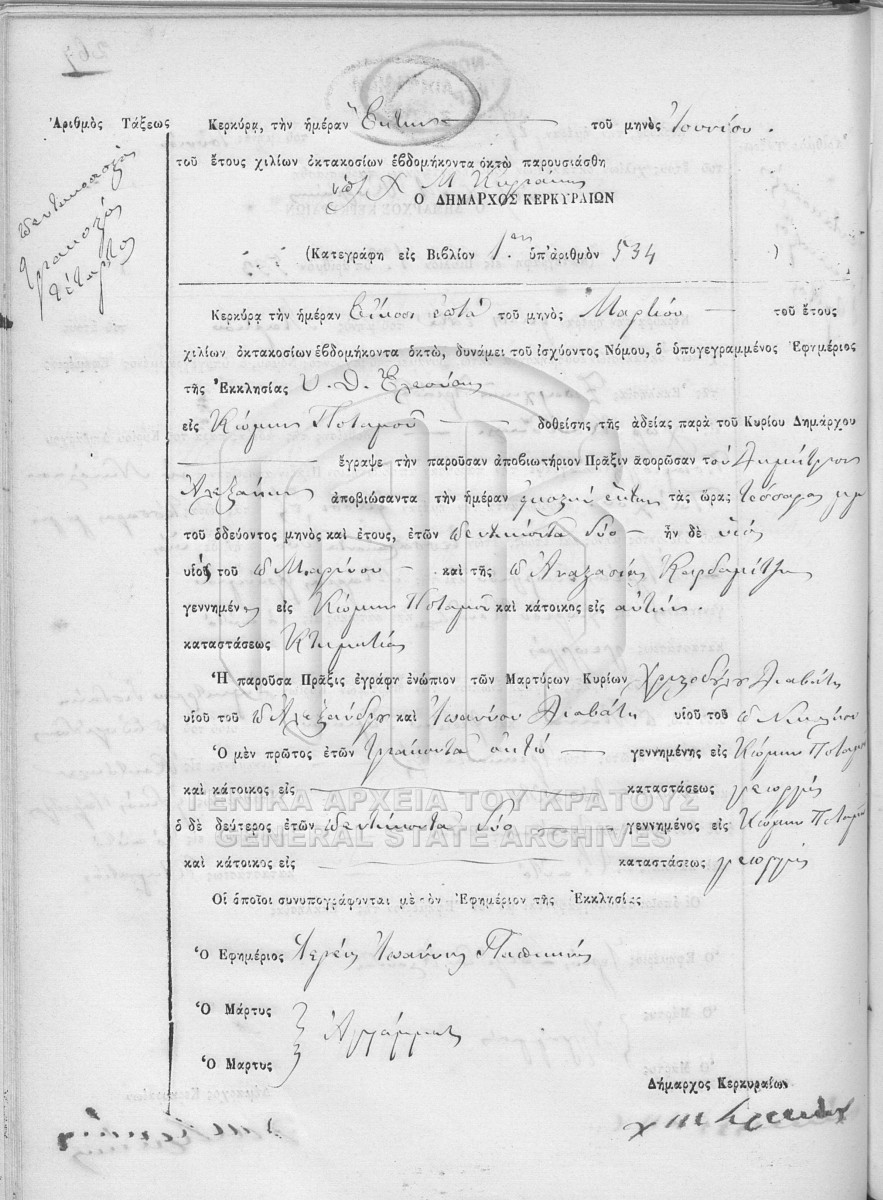 Ἀριθμὸς Τάξεως
Πεντακόσια
τριακοστός
τέταρτος
Κερκύρᾳ, τὴν ἡμέραν Ἕκτην τοῦ μηνὸς Ἰουνίου.
τοῦ ἔτους χιλίων ὀκτακοσίων ἑβδομήκοντα ὀκτὼ παρουσιάσθη
Ὁ ΔΗΜΑΡΧΟΣ ΚΕΡΚΥΡΑΙΩΝ
(Κατεγράφη εἰς Βιβλίον 1ον ὑπ' ἀριθμὸν 534 )
Κερκύρᾳ τὴν ἡμέραν Εἴκοσι ἑπτὰ τοῦ μηνὸς Μαρτίου τοῦ ἔτους
χιλίων ὀκτακοσίων ἑβδομήκοντα ὀκτὼ, δυνάμει τοῦ ἰσχύοντος Νόμου, ὁ ὑπογεγραμμένος Ἐφημέριος
τῆς Ἐκκλησίας Υ. Θ. Ἐλεούσης
εἰς Κώμην Ποταμοῦ δοθείσης τῆς ἀδείας παρὰ τοῦ Κυρίου Δημάρχου
ἔγραψε τὴν παροῦσαν ἀποβιωτήριον Πρᾶξιν ἀφορῶσαν τοῦ Δημήτριος
Ἀλεξάκης ἀποβιώσαντα τὴν ἡμέραν εἰκοστὴν ἕκτην τὰς ὥρας τέσσαρας
τοῦ ὁδεύοντος μηνὸς καὶ ἔτους, ἐτῶν πεντήκοντα δύο ἦν δὲ υἱὸς
υἱοῦ τοῦ π Μαρίνου καὶ τῆς π Ἀναστασίης Καρδαμίτζη
γεννημένης εἰς Κώμην Ποταμοῦ καὶ κάτοικος εἰς αὐτήν.
καταστάσεως Κτηματίας
Ἡ παροῦσα Πρᾶξις ἐγράφη ἐνώπιον τῶν Μαρτύρων Κυρίων Χριστοδούλου Διαβάτη
υἱοῦ τοῦ π Ἀλεξάνδρου καὶ Ἰωαννίου Διαβάτη υἱοῦ τοῦ π Νικολάου
Ὁ μὲν πρῶτος ἐτῶν τριάκοντα ὀκτώ γεννημένης εἰς Κώμην Ποταμοῦ
καὶ κάτοικος εἰς καταστάσεως γεωργός
ΓΕΝΙΚΑ ΑΡΧΕΙΑ ΤΟΥ ΚΡΑΤΟΥΣ
ὁ δὲ δεύτερος ἐτῶν πεντήκοντα δύο γεννημένος εἰς Κώμην Ποταμοῦ
GENERAL STATE ARCHIVES
καὶ κάτοικος εἰς καταστάσεως γεωργός
Οἱ ὁποῖοι συνυπογράφονται μὲ τὸν Ἐφημέριον τῆς Ἐκκλησίας
Ὁ Ἐφημέριος Ἱερεὺς Ἰωάννης
Ὁ Μάρτυς
Ἀγράμματοι
Ὁ Μαρτυς
Δήμαρχος Κερκυραίων